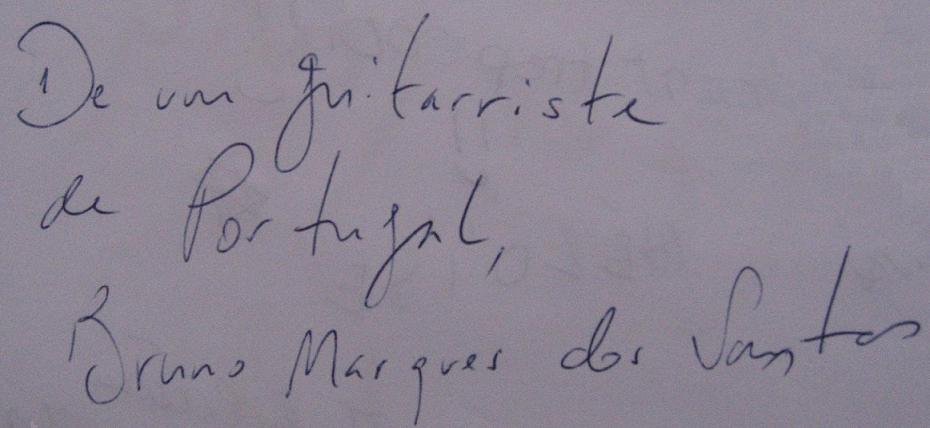 De um guitarrista
de Portugal,
Bruno Marques dos Santos